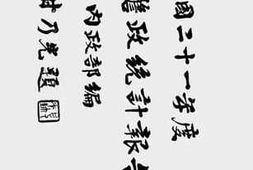 國二十一年度
警政統計報告
內政部編
甘乃光題